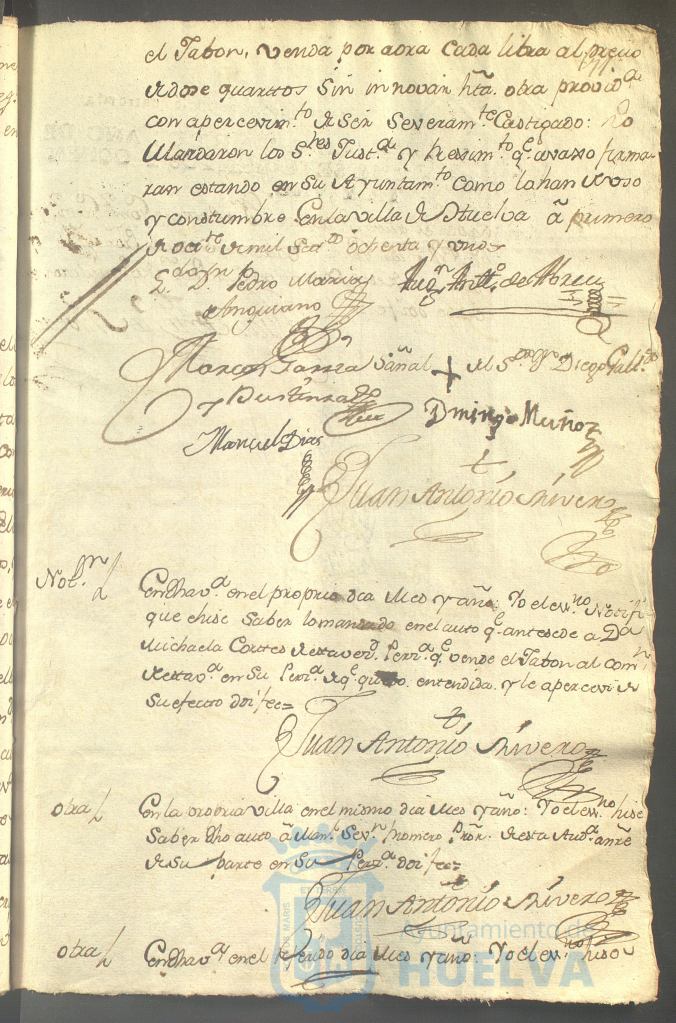 el Jabon, venda por aora cada libra al precio
de dose quarttos sin innovar hta. otra provid.ª
con apercevim.to de ser severam.te Castigado: 
Mandaron los S.res Just.ª y Rexim.to q.e avaxo firma-
ran estando en su Ayuntam.to como lo han de uso
y constumbre en la Villa de Huelva â primero
de oct.re de mil Set.os ochenta y
D. Pedro Maria
de Anguiano
de
Marcos Garza Señal + del S.or Diego
y Bustinza
Domingo Muñoz
Manuel Dias
Juan Antonio Rivero
Not.on En dha v.ª en el proprio dia Mes y año: Yo el ess.no Notifi-
que e hise saber lo mandado en el auto q.e antesede a D.ª
Michaela Cortes de esta ve.d Per.ª q.e vende el Jabon al Com.n
de esta v.ª en su Per.ª de q.e quedo entendida y le apercevi de
su efecto doi fee=
Juan Antonio Rivero
otra En la propria villa en el mismo dia Mes y año: Yo el ess.no hise
Saber dho auto â Man.l Romero Pror. de esta Aud.ª
de su parte en su Per.ª doi fee=
Juan Antonio Rivero
otra En dha v.ª en el dia Mes y año: Yo el ess.no hise
ayuntamiento de
HUELVA